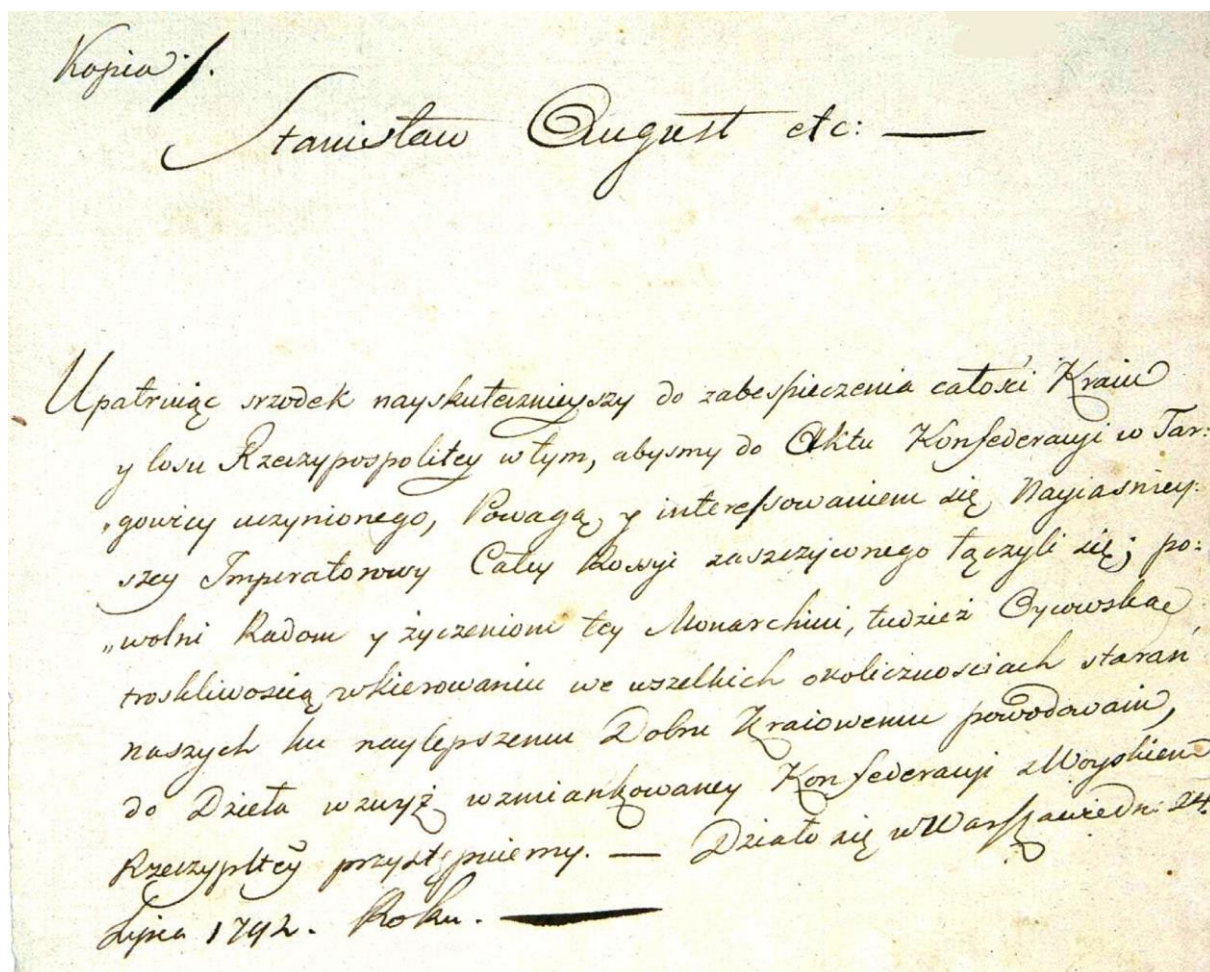 Kopia ./.
Stanisław August etc: —
Upatruiąc srzodek nayskutecznieyszy do zabespieczenia całości Kraiu
y losu Rzeczypospolitey w tym, abysmy do Aktu Konfederacyi w Tar:
„gowicy uczynionego, Powagą y interessowaniem się Nayiaśniey:
szey Imperatorowy Całey Rossyi zaszczyconego łączyli się; po:
„wolni Radom y życzeniom tey Monarchini, tudzież Oycowską
troskliwością w kierowaniu we wszelkich okolicznosciach starań
naszych ku naylepszemu Dobru Kraiowemu powodowani,
do Dzieła wzwyż wzmiankowaney Konfederacyi z Woyskiem
Rzeczypltey przystępuiemy. — Działo się w Warszawie dn: 24.
Lipca 1792. Roku. —